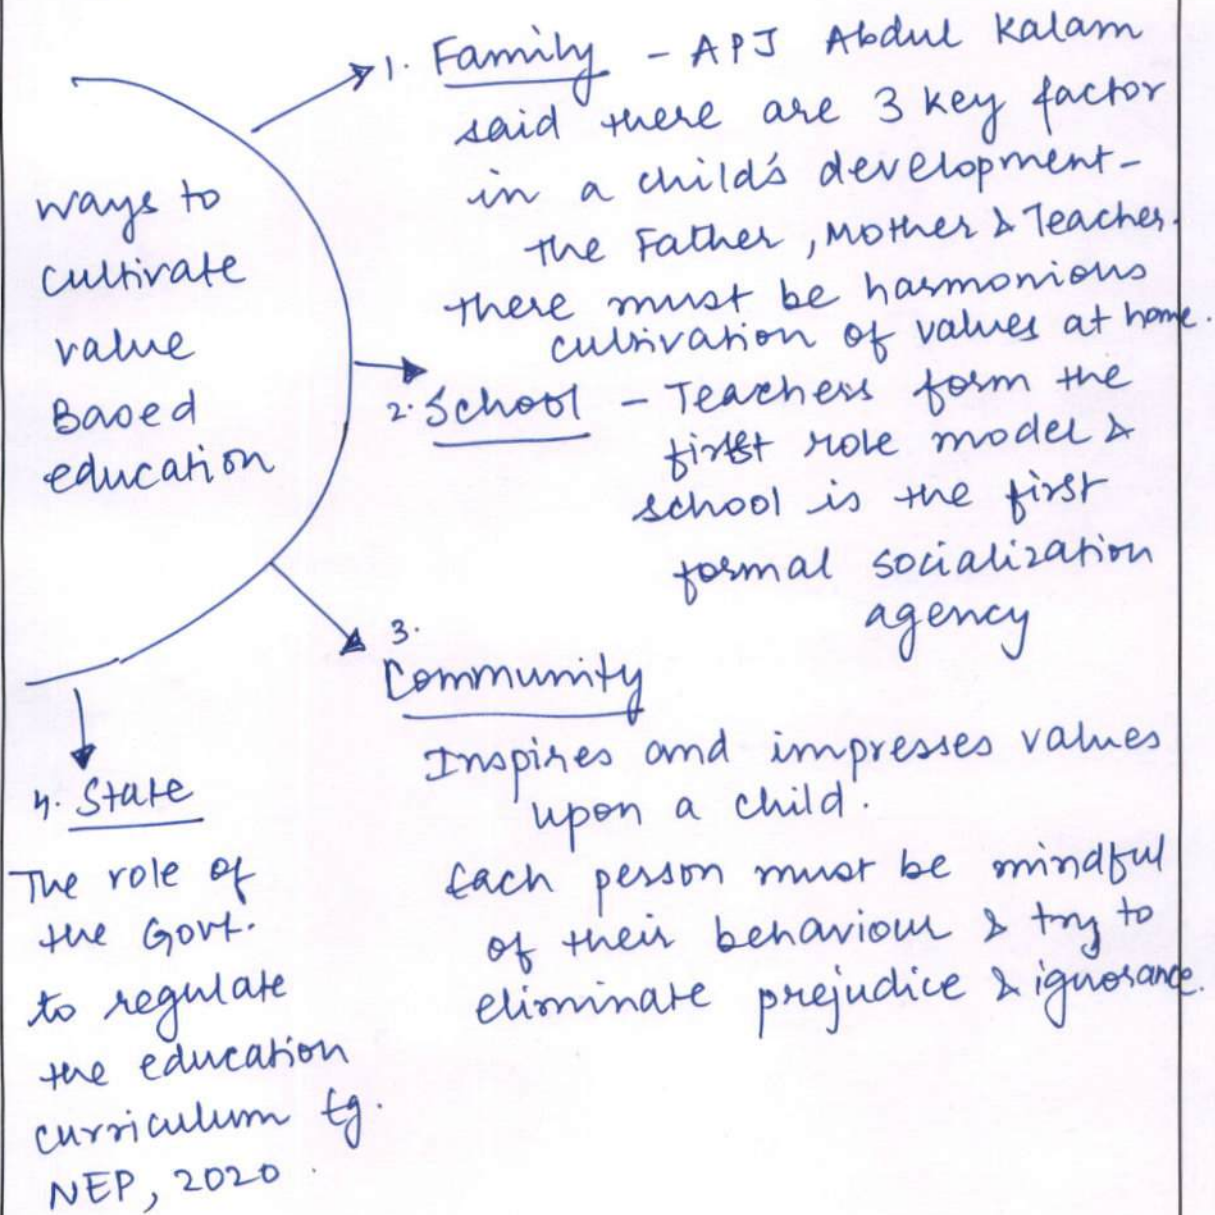 ways to
cultivate
value
Based
education
1. Family - APJ Abdul Kalam
said there are 3 key factor
in a child's development-
the Father, Mother & Teacher.
there must be harmonious
cultivation of values at home.
2. School - Teachers form the
first role model &
school is the first
formal socialization
agency
3.
Community
Inspires and impresses values
upon a child.
Each person must be mindful
of their behaviour & try to
eliminate prejudice & ignorance.
4. State
The role of
the Govt.
to regulate
the education
curriculum Eg.
NEP, 2020.